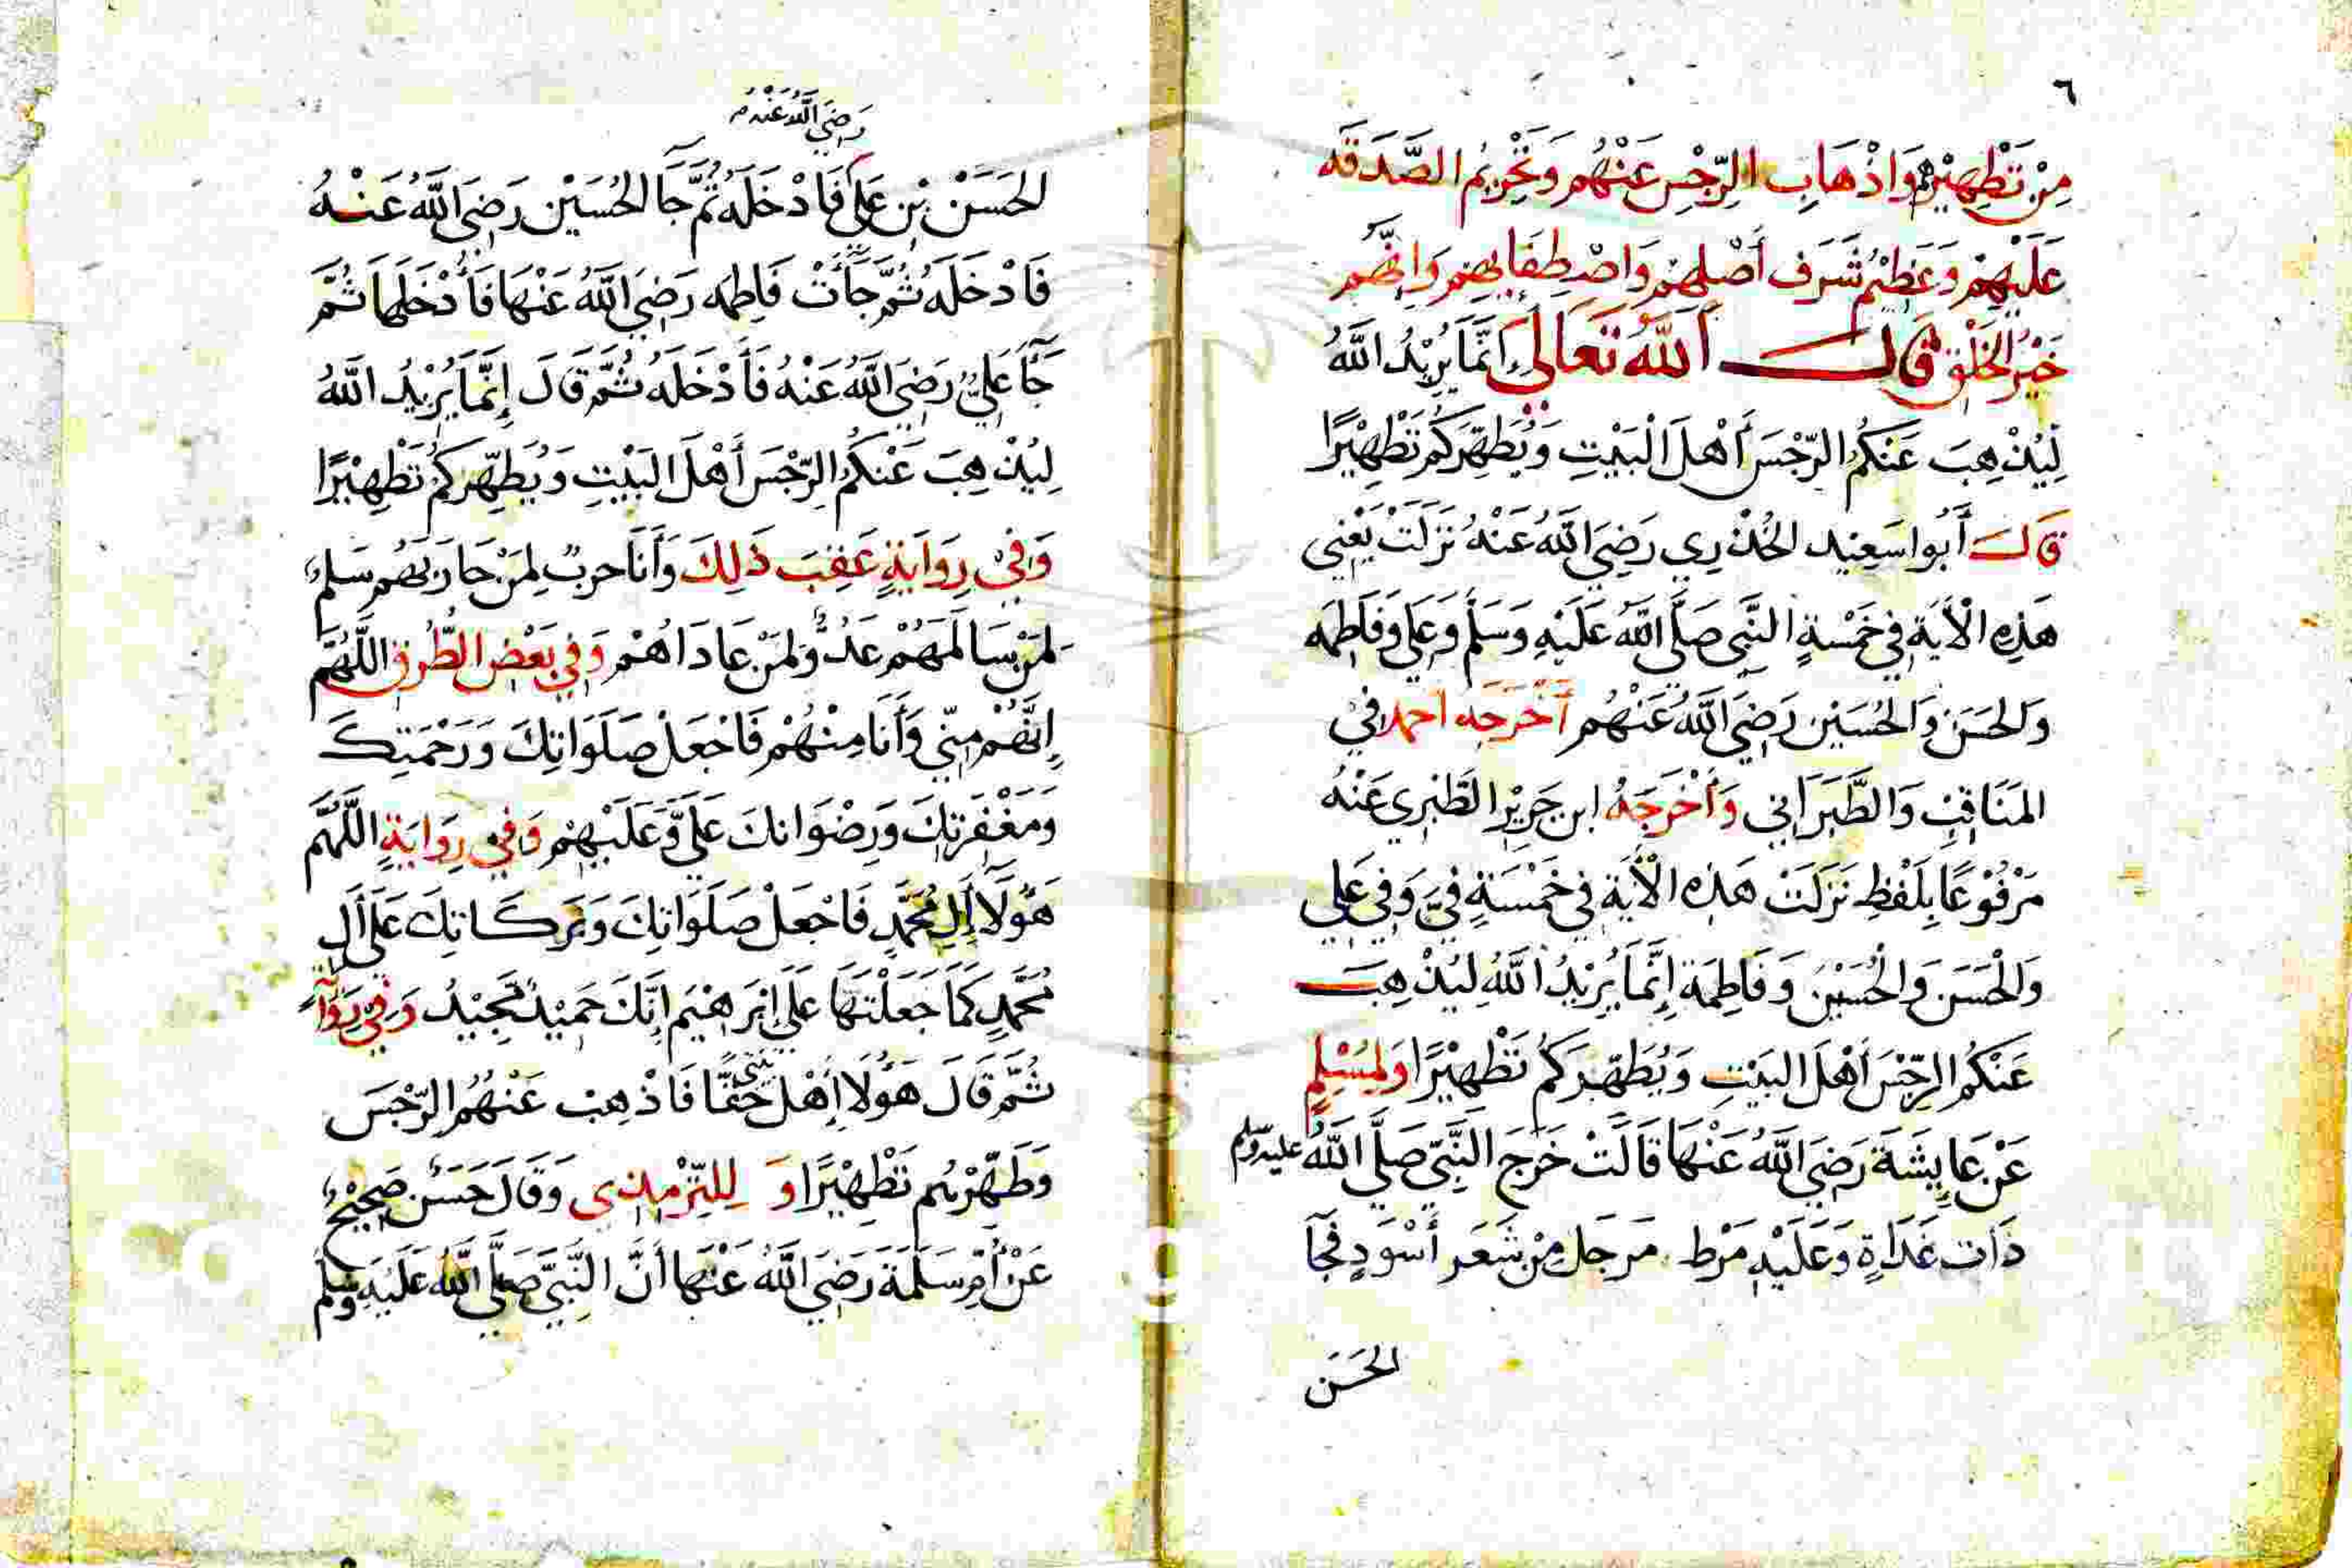 ٦
مِنْ تَطْهِيْرِهِمْ وَاِذْهَابِ الرِّجْسِ عَنْهُمْ وَتَحْرِيمُ الصَّدَقَه
عَلَيْهِمْ وَعَظِيْمُ شَرَفِ أَصْلِهِمْ وَاصْطِفَايِهِمْ وَاِنَّهُم
خَيْرُ الخَلْقِ قَالَ اَللّٰهُ تَعَالَى اِنَّمَا يُرِيْدُ اللّٰهُ
لِيُذْهِبَ عَنْكُمُ الرِّجْسَ أَهْلَ الْبَيْتِ وَيُطَهِّرَكُمْ تَطْهِيْرًا
قَالَ أَبُوا سَعِيْد الخُدْرِي رَضِيَ اللّٰهُ عَنْهُ نَزَلَتْ يَعْنِي
هَذِهِ الْأَيَةِ فِي خَمْسَةٍ النَّبِي صَلَّى اللّٰهُ عَلَيْهِ وَسَلَّمَ وَعَلِي وَفَاطِمَه
وَالحَسَنِ وَالحُسَيْنِ رَضِيَ اللّٰهُ عَنْهُم أَخْرَجَه احمد فِيْ
المَنَاقِبِ وَالطَّبَرَانِي وَأَخْرَجَهُ ابن جَرِيْرِ الطَّبَرِي عَنْهُ
مَرْفُوْعًا بِلَفْظِ نَزَلَتْ هَذِهِ الْأَيَةِ فِي خَمْسَةٍ فِيَّ وَفِي عَلِي
وَالْحَسَنِ وَالْحُسَيْنِ وَفَاطِمَة إِنَّمَا يُرِيْدُ اللّٰهُ لِيُذْهِبَ
عَنْكُمُ الرِّجْسَ أَهْلَ البَيْتِ وَيُطَهِّرَكُمْ تَطْهِيْرًا وَلِمُسْلِمٍ
عَنْ عَايِشَةَ رَضِيَ اللّٰهُ عَنْهَا قَالَتْ خَرَجَ النَّبِيّ صَلَّى اللّٰهُ عليه وسلم
ذَات غَدَاةٍ وَعَلَيْهِ مَرْط مَرَجل مِنْ شَعَرٍ أَسْوَدٍ فَجَآ
الحَسَن
رَضِيَ اللّٰهُ عَنْهُ
الحَسَنْ بْنِ عَلِي فَادْخَلَهُ ثُمَّ جَا الحُسَيْن رَضِيَ اللّٰهُ عَنْهُ
فَادْخَلَهُ ثُمَّ جَأَتْ فَاطِمَه رَضِيَ اللّٰهُ عَنْهَا فَأَدْخَلَهَا ثُمَّ
جَآَ عَلِيٌّ رَضِيَ اللّٰهُ عَنْهُ فَأَدْخَلَهُ ثُمَّ قَالَ إِنَّمَا يُرِيْدُ اللّٰهُ
لِيُذْهِبَ عَنْكُمُ الرِّجْسَ أَهْلَ البَيْتِ وَيُطَهِّرَكُمْ تَطْهِيْرًا
وَفِيْ رِوَايَةٍ عَقِبَ ذَلِكَ وَأَنَا حربٌ لِمَنْ حَارَبَهُم سَلِمٌ
لِمَنْ سَالَمَهُمْ عَدُوٌّ لِمَنْ عَادَاهُمْ وَفِي بَعْضِ الطُّرُقِ اللّٰهُمَّ
اِنَّهُمْ مِنِّي وَأَنَا مِنْهُمْ فَاجْعَلْ صَلَوَاتِكَ وَرَحْمَتِكَ
وَمَغْفِرَتِكَ وَرِضْوَانِكَ عَلَيَّ وَعَلَيْهِمْ وَفِي رِوَايَةٍ اللّٰهُمَّ
هَؤُلَا أَلِ مُحَمَّدٍ فَاجْعَلْ صَلَوَاتِكَ وَبَرَكَاتِكَ عَلَى أَلِ
مُحَمَّدٍ كَمَا جَعَلْتَهَا عَلَى إِبْرَاهِيْمَ إِنَّكَ حَمِيْدٌ مَجِيْدُ وَفِيْ رِوَايَةٍ
ثُمَّ قَالَ هَؤُلَا أَهْلُ بيتي حَقًّا فَاذْهِبْ عَنْهُمُ الرِّجْسَ
وَطَهِّرْهُم تَطْهِيْرًا وَ لِلتِّرْمِذِي وَقَالَ حَسَن صَحِيْحٌ
عَنْ أُمِّ سَلَمَةَ رَضِيَ اللّٰهُ عَنْهَا أَنَّ النَّبِيَّ صَلَّى اللّٰهُ عَلَيْهِ وَسَلَّمَ